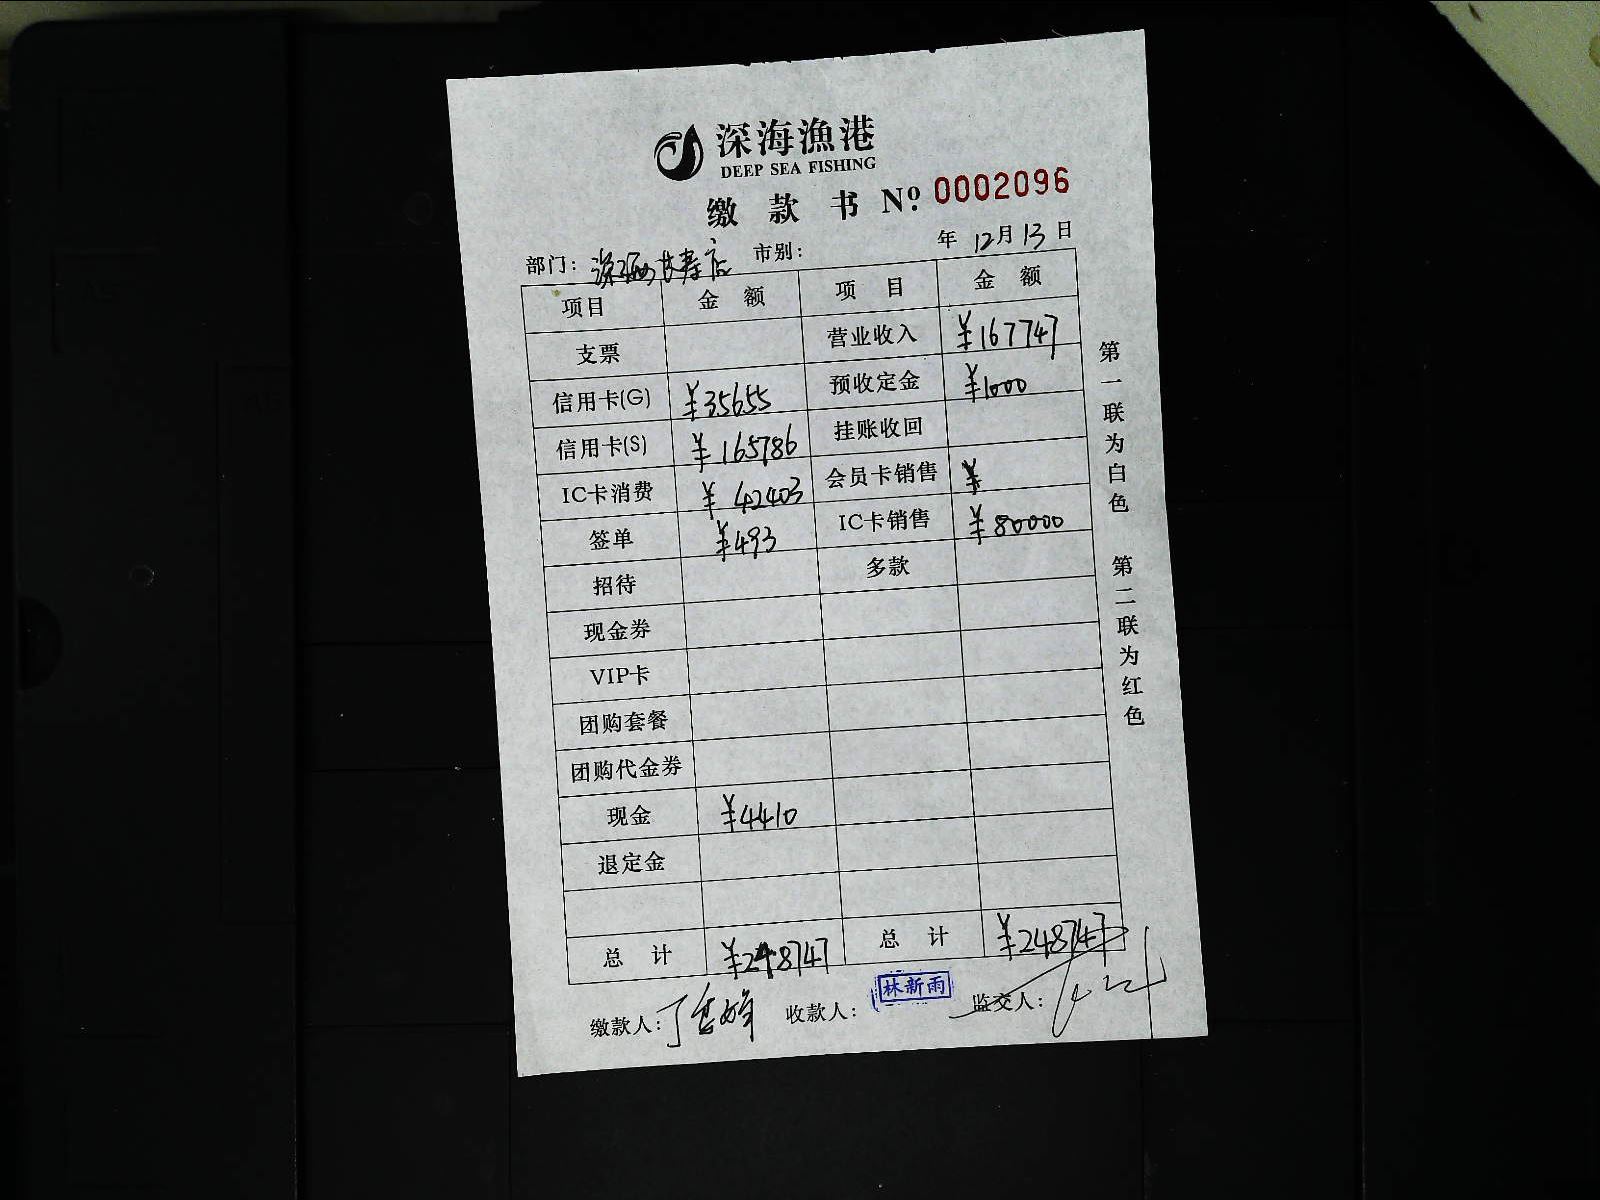 深海漁港
DEEP SEA FISHING
缴款书 Nº: 0002096
部门: 深海 店 市别: 年 12月13日
项目 金额 项目 金额
支票 营业收入 ¥167747
信用卡(G) ¥35655 预收定金 ¥1000
信用卡(S) ¥165786 挂账收回
IC卡消费 ¥42403 会员卡销售 ¥
签单 ¥493 IC卡销售 ¥80000
招待 多款
现金券
VIP卡
团购套餐
团购代金券
现金 ¥4410
退定金
总计 ¥248747 总计 ¥248747
缴款人: 丁 收款人: 林新雨 监交人:
第一联为白色 第二联为红色